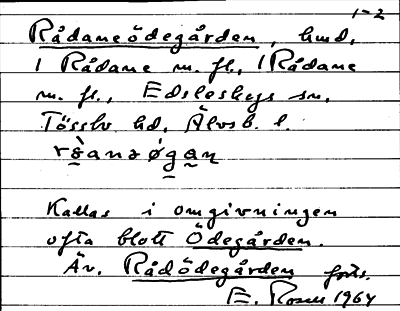 1-2
Rådaneödegården, hmd,
1 Rådane m. fl., 1 Rådane
m. fl., Edsleskogs sn,
Tössbo hd, Älvsb. l.
Kallas i omgivningen
ofta blott Ödegården.
Äv. Rådödegården förts.
E. Rosell 1964